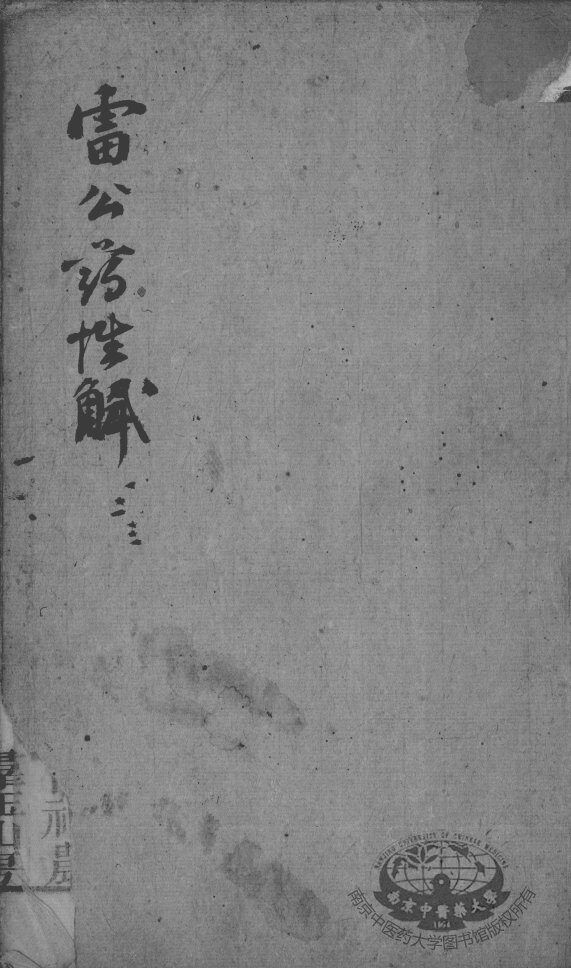 雷公药性解
一二三
NANJING UNIVERSITY OF CHINESE MEDICINE
南京中醫藥大學
南京中医药大学图书馆版权所有